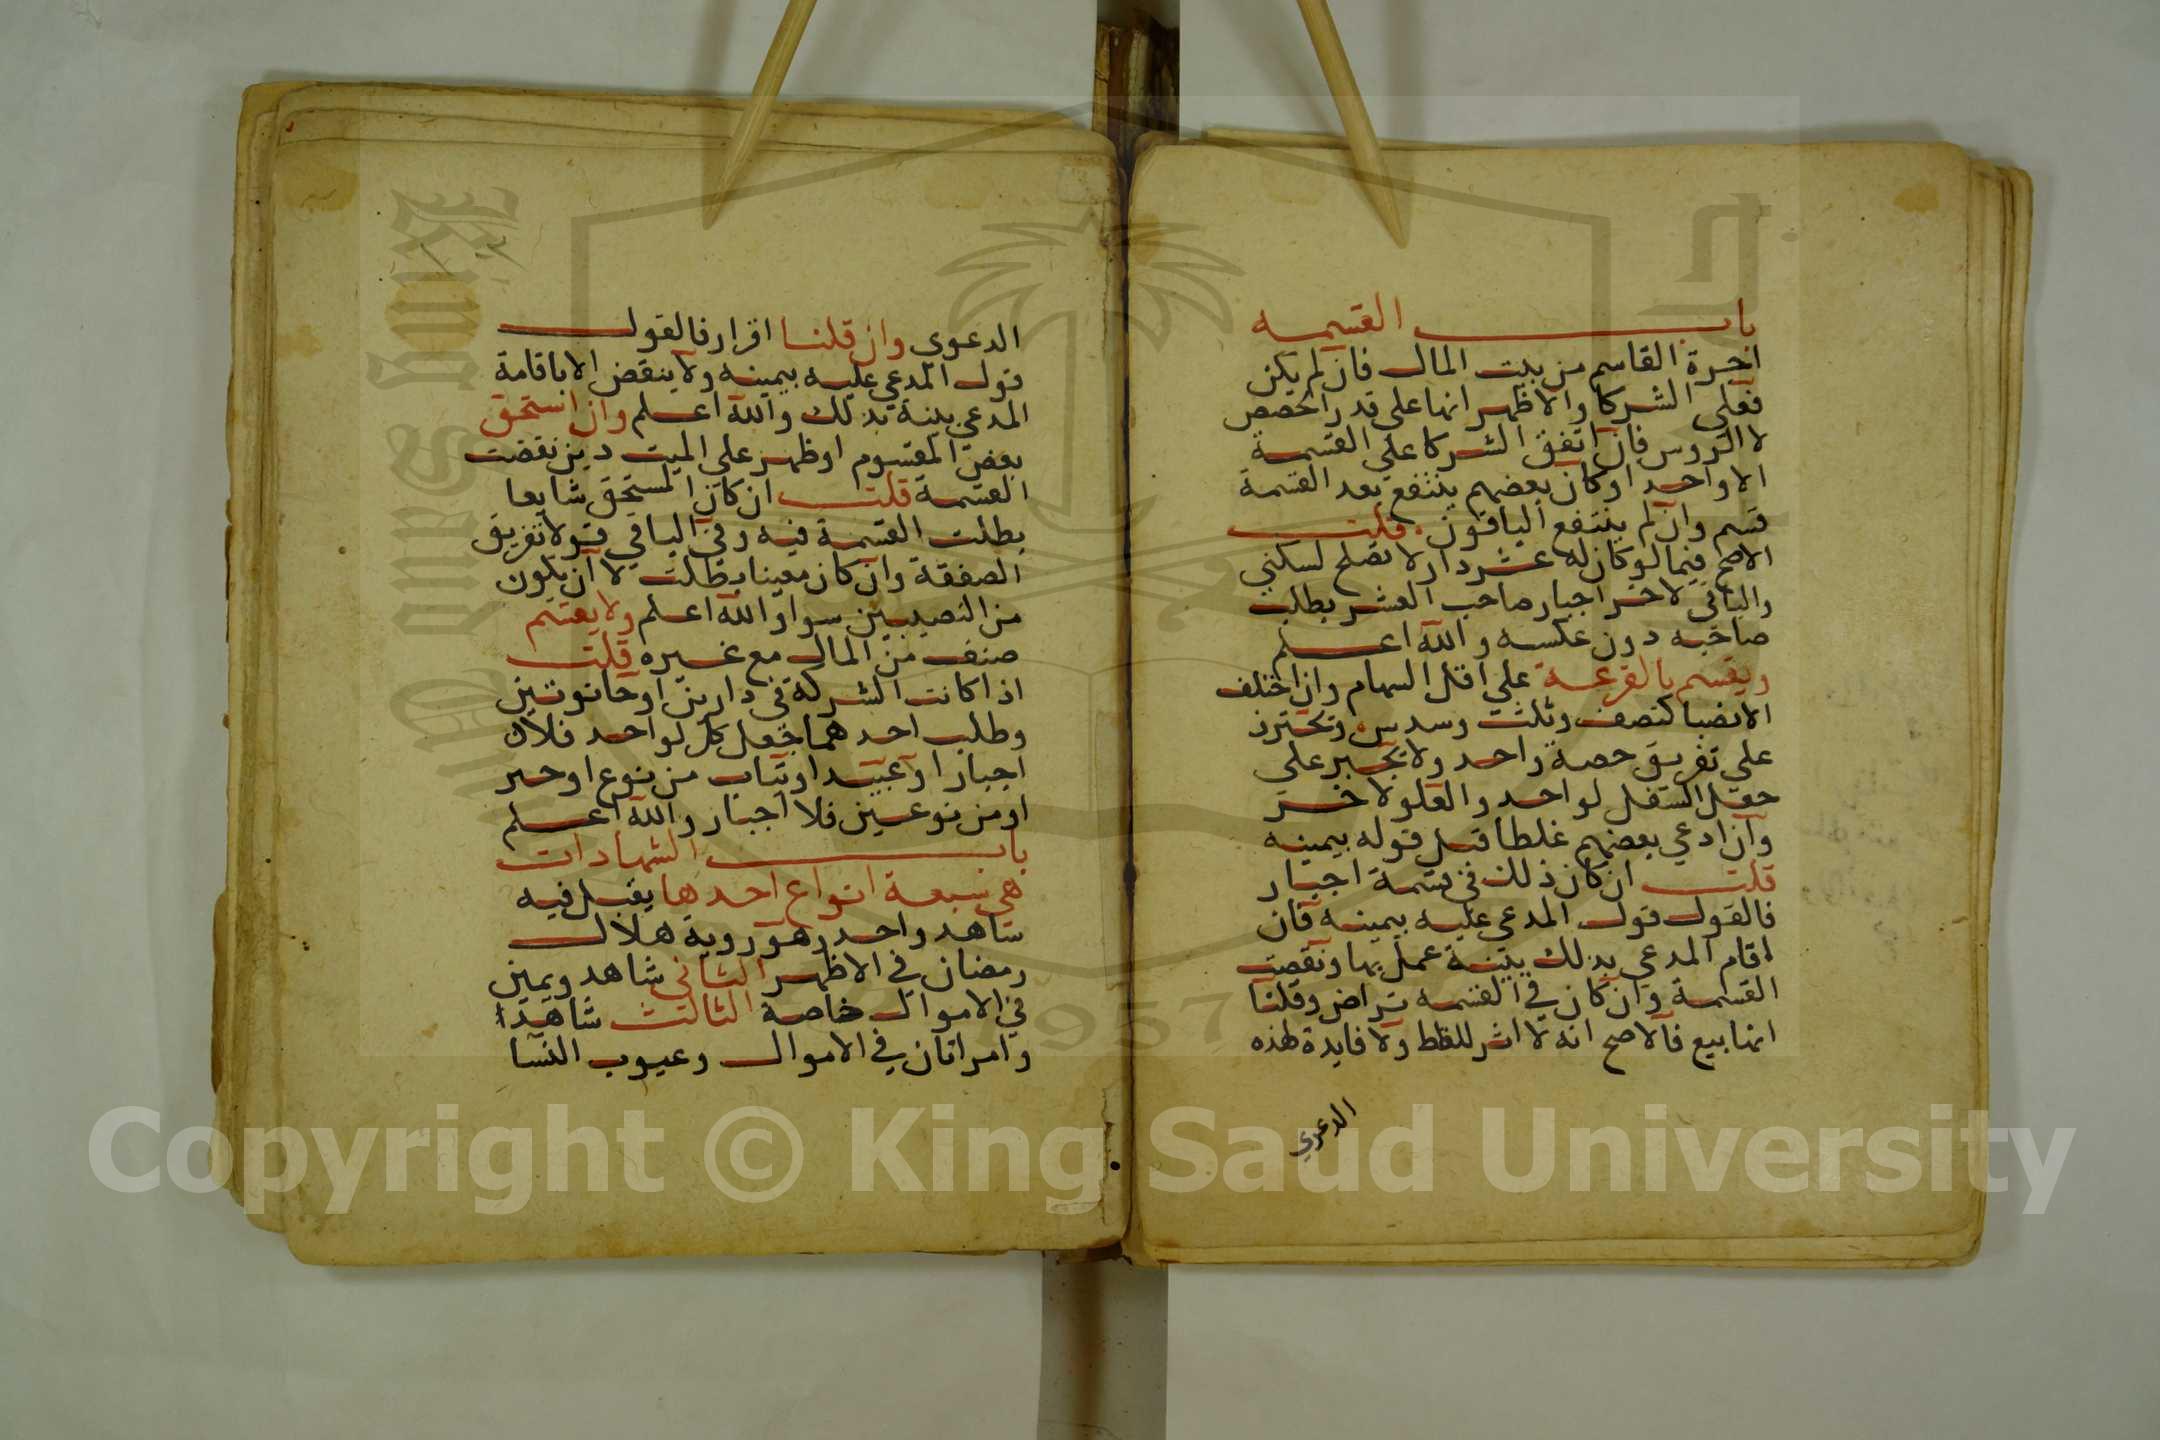 باب القسمه
اجرة القاسم من بيت المال فان لم يكن
فعلي الشركا والاظهر انها علي قدر الحصص
لا الروس فان اتفق الشركا علي القسمة
الا واحد او كان بعضهم ينتفع بعد القسمة
قسم وان لم ينتفع الباقون. قلت
الاصح فيما لو كان له عشر دار لا تصلح لسكني
والباقي لاخر اجبار صاحب العشر بطلب
صاحبه دون عكسه والله اعلم
ويقسم بالقرعة علي اقل السهام وان اختلف
الانصبا كنصف وثلث وسدس وتحترز
علي تفريق حصة واحد ولا يجبر علي
جعل السفل لواحد والعلو لاخر
وان ادعي بعضهم غلطا قبل قوله بيمينه
قلت ان كان ذلك في قسمة اجبار
فالقول قول المدعي عليه بيمينه فان
اقام المدعي بذلك بينة عمل بها ونقضت
القسمة وان كان في القسمه تراض وقلنا
انها بيع فالاصح انه لا اثر للغلط ولا فايدة لهذه
الدعوي
الدعوي وان قلنا اقرار فالقول
قول المدعي عليه بيمينه ولا ينقض الا باقامة
المدعي بينة بذلك والله اعلم وان استحق
بعض المقسوم او ظهر علي الميت دين نقضت
القسمة قلت ان كان المستحق شايعا
بطلت القسمة فيه وفي الباقي قولا تفريق
الصفقة وان كان معينا بطلت لا ان يكون
من النصيبين سواوالله اعلم ولا يقسم
صنف من المال مع غيره قلت
اذا كانت الشركة في دارين او حانوتين
وطلب احدهما جعل كل لواحد فلا
اجبار او عبيد او ثياب من نوع اوجبر
او من نوعين فلا اجبار والله اعلم
باب الشهادات
هي سبعة انواع احدها يقبل فيه
شاهد واحد وهو روية هلال
رمضان في الاظهر الثاني شاهد ويمين
في الاموال خاصة الثالث شاهد
وامراتان في الاموال وعيوب النسا
Copyright © King Saud University
1957